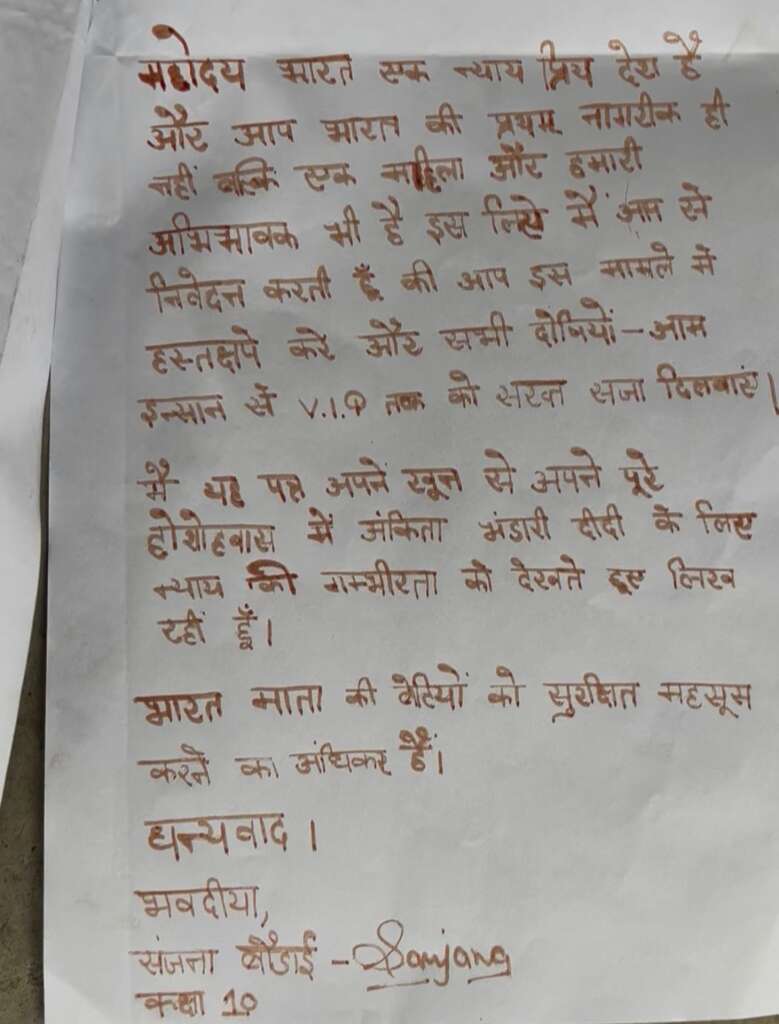 महोदय भारत एक न्याय प्रिय देश है
और आप भारत की प्रथम नागरीक ही
नहीं बल्कि एक महिला और हमारी
अभिभावक भी है इस लिए मैं आप से
निवेदन करती हूँ की आप इस मामले में
हस्तक्षपे करे और सभी दोषियों - आम
इन्सान से V.I.P तक को सख्त सजा दिलवाएं।
मै यह पत्र अपने खून से अपने पूरे
होशोहवास में अंकिता भंडारी दीदी के लिए
न्याय की गम्भीरता को देखते हुए लिख
रहीं हूँ।
भारत माता की बेटियों को सुरक्षित महसूस
करने का अधिकर हैं।
धन्यवाद।
भवदीया,
संजना - Sanjana
कक्षा 10